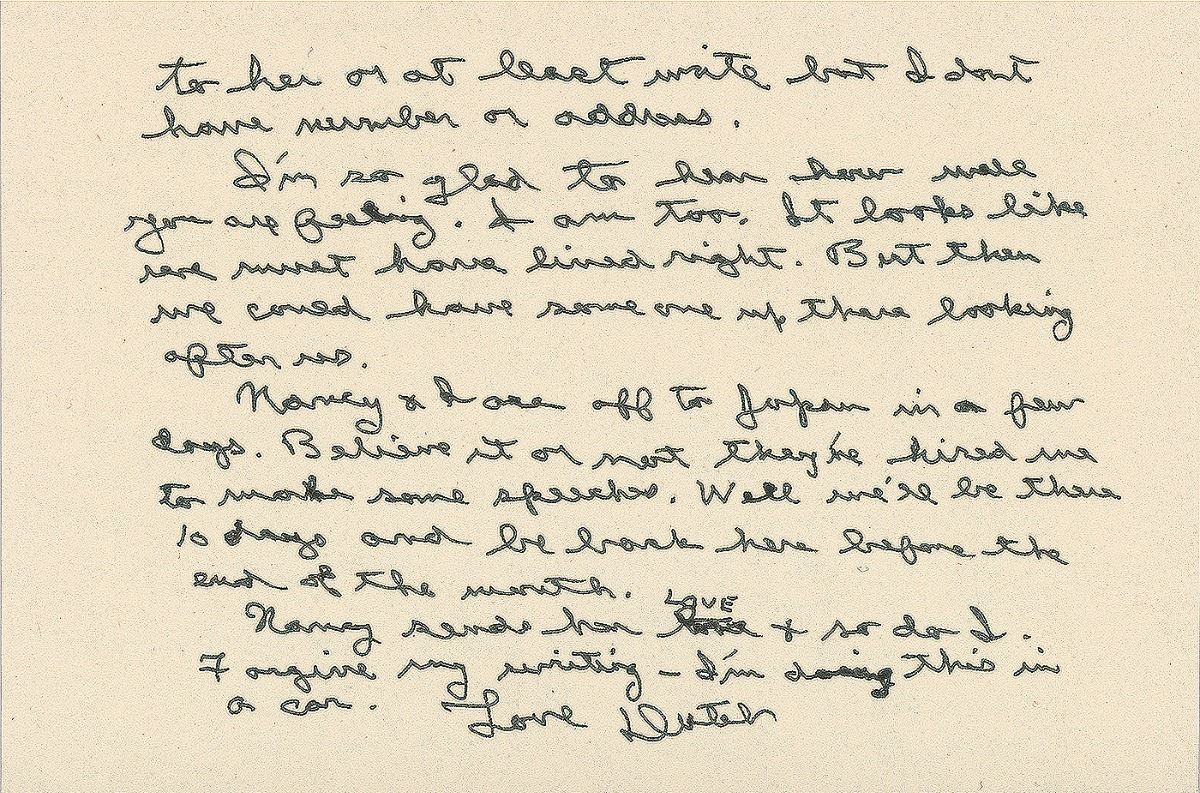 to her or at least write but I dont
have number or address.
I'm so glad to hear how well
you are feeling. I am too. It looks like
we must have lived right. But then
we could have some one up there looking
after us.
Nancy & I are off to Japan in a few
days. Believe it or not they've hired me
to make some speeches. Well we'll be there
10 days and be back here before the
end of the month.
LOVE
Nancy sends her love & so do I.
Forgive my writing – I'm doing this in
a car. Love Dutch